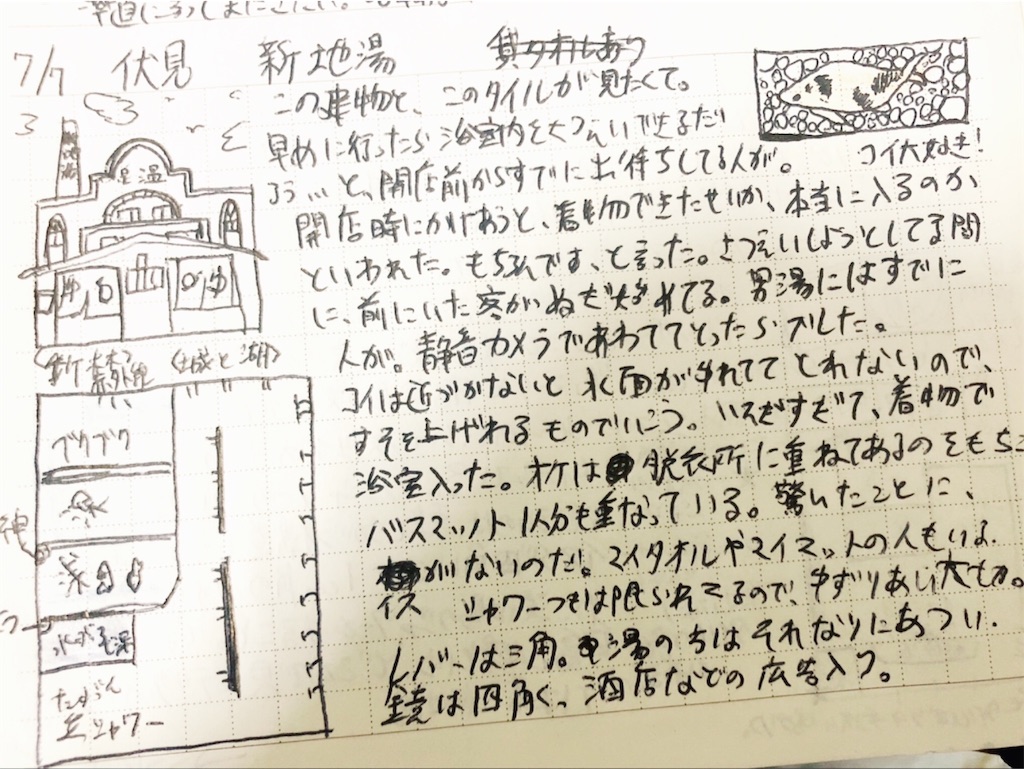 7/7 伏見 新地湯 貸タオルあり
この建物と、このタイルが見たくて。
早めに行ったら浴室内をさつえいできるだ
ろう…と、開店前からすでに出待ちしてる人が。
コイ大好き!
開店時にかけあうと、着物できたせいか、本当に入るのか
といわれた。もちろんです、と言った。さつえいしようとしてる間
に、前にいた客がぬぎ始めてる。男湯にはすでに
人が。静音カメラであわててとったらブレした。
コイは近づかないと水面がゆれてて とれないので、
すそを上げれるものでいこう。いそぎすぎて、着物で
浴室入った。オケは脱衣所に重ねてあるのをもち
バスマット1人分も重なっている。驚いたことに、
イスがないのだ。マイタオルやマイマットの人もいるよ
シャワーつきは限られてるので、ゆずりあい大せつ。
レバーは三角。湯のちはそれなりにあつい.
鏡は四角く、酒店などの広告入り。
温
ゆ
ゆ
ブクブク
深
水
たちぶん
立シャワー